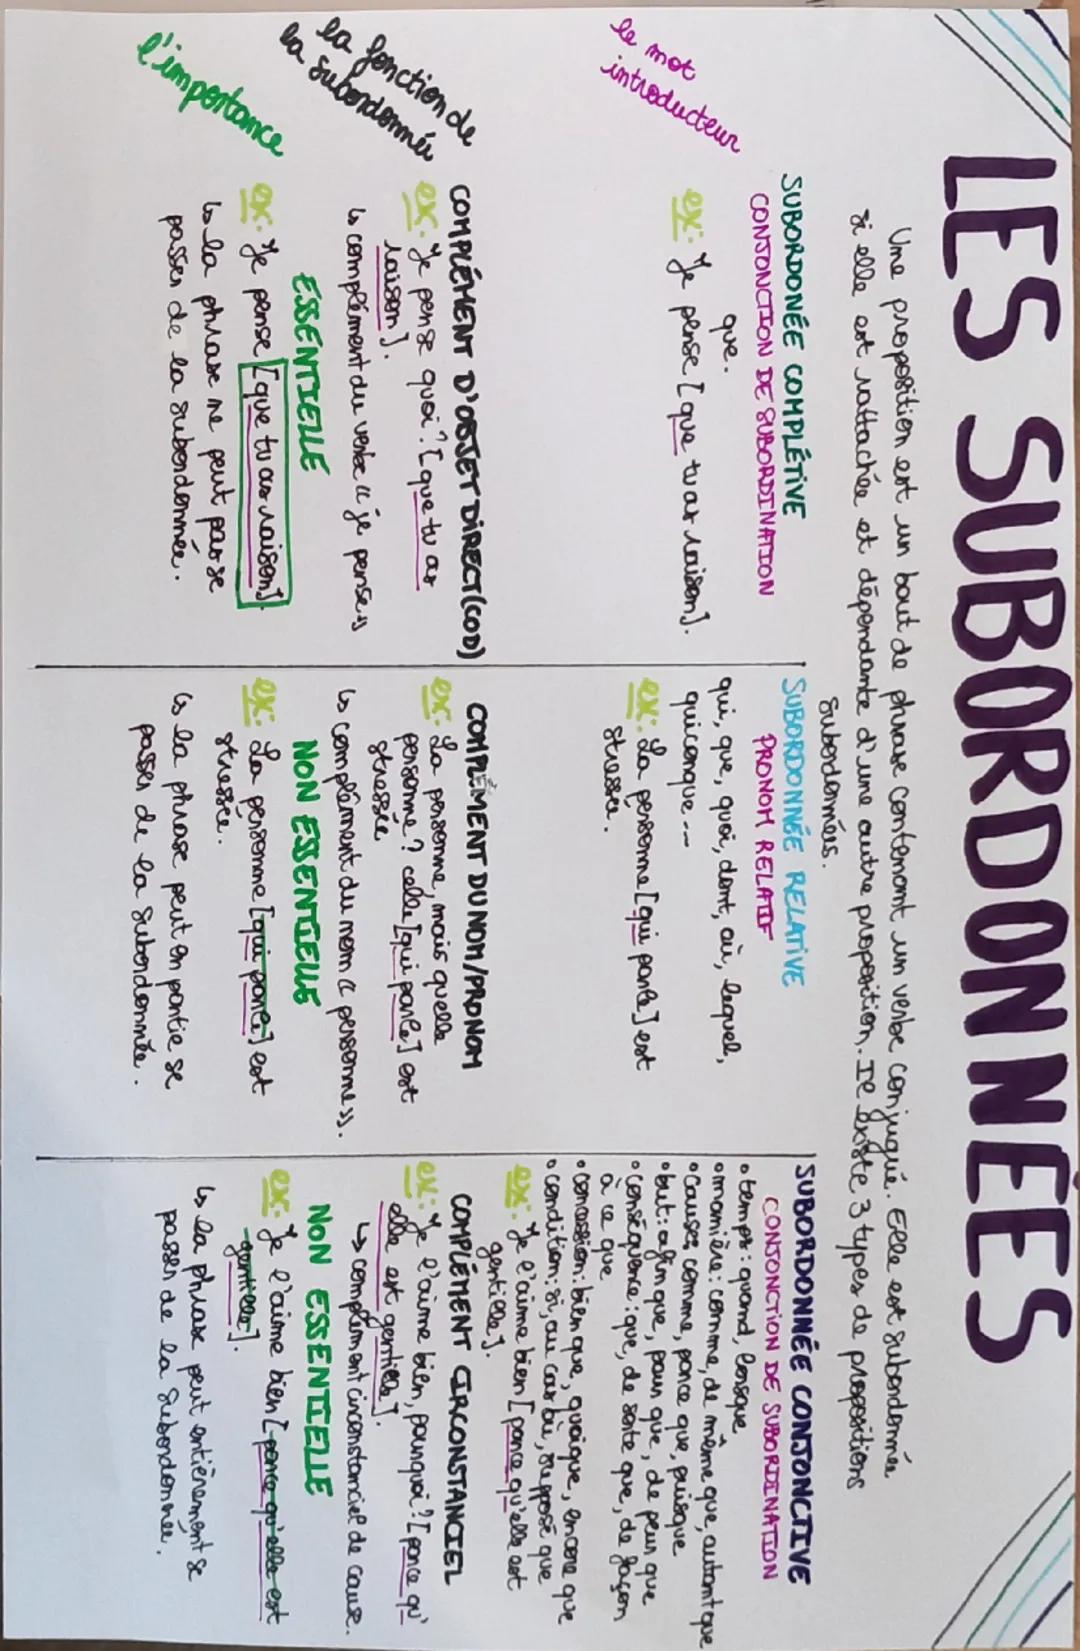 LES SUBORDONNÉES
Une proposition est un bout de phrase contenant un verbe conjugué. Elle est subordonnée
si elle est rattachée et dépendante d'une autre proposition. Il existe 3 types de propositions
subordonnées.
le mot
introducteur
SUBORDONÉE COMPLÉTIVE
CONJONCTION DE SUBORDINATION
que.
ex: Je pense [que tu as raison].
SUBORDONNÉE RELATIVE
PRONOM RELATIF
qui, que, quoi, dont, où, lequel,
quiconque ---
ex: La personne [qui parle] est
stressée.
SUBORDONNÉE CONJONCTIVE
CONJONCTION DE SUBORDINATION
• temps: quand, lorsque
• manière: comme, de même que, autant que
• causes, comme, parce que, puisque
• but: afin que, pour que, de peur que
• conséquence: que, de sorte que, de façon
à ce que
• concession: bien que, quoique, encore que
• condition: si, au cas où, supposé que
ex: Je l'aime bien [parce qu'elle est
gentille].
la fonction de
la subordonnée
COMPLÉMENT D'OBJET DIRECT (COD)
ex: Je pense quoi? [que tu as
raison].
↳ complément du verbe « je pense »
COMPLÉMENT DU NOM/PRONOM
ex: La personne, mais quelle
personne? celle [qui parle] est
stressée
↳ complément du nom « personne ».
COMPLÉMENT CIRCONSTANCIEL
ex: Je l'aime bien, pourquoi? [parce qu'
elle est gentille].
↳ complément circonstanciel de cause.
l'importance
ESSENTIELLE
ex: Je pense [que tu as raison].
↳ la phrase ne peut pas se
passer de la subordonnée.
NON ESSENTIELLE
ex: La personne [qui parle] est
stressée.
↳ la phrase peut en partie se
passer de la subordonnée.
NON ESSENTIELLE
ex: Je l'aime bien [parce qu'elle est
gentille].
↳ la phrase peut entièrement se
passer de la subordonnée.